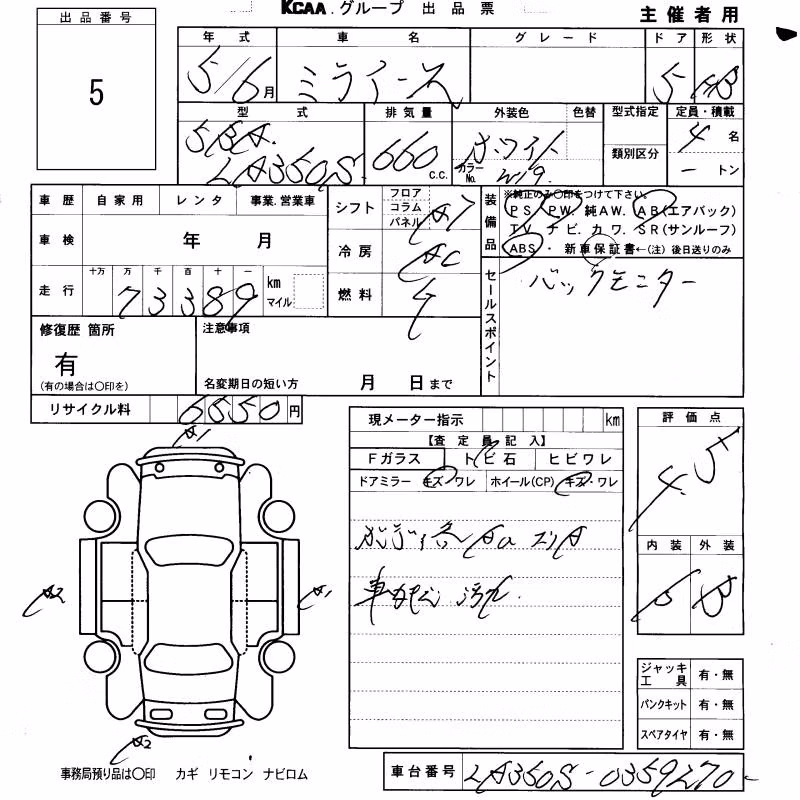 KCAA.グループ 出品票
主催者用
出品番号
5
年式 車名 グレード ドア 形状
5/6月 ミライース 5 HB
型式 排気量 外装色 色替 型式指定 定員・積載
5BA. LA350S. 660 c.c. ホワイト カラーNo. W19 類別区分 4名
ートン
車歴 自家用 レンタ 事業.営業車
シフト フロア コラム パネル AT
装備品 ※純正のみ○印をつけて下さい。
PS. PW. 純AW. AB(エアバック)
TV. ナビ. カワ. SR(サンルーフ)
ABS・新車保証書←(注)後日送りのみ
車検 年 月
冷房 AC
走行 十万 万 千 百 十 一
73389 km マイル
燃料
セールスポイント
バックモニター
修復歴 箇所
有
(有の場合は○印を)
注意事項
名変期日の短い方 月 日まで
リサイクル料 6650円
現メーター指示 km
【査定員記入】
Fガラス トビ石 ヒビワレ
ドアミラー キズ・ワレ ホイール(CP) キズ・ワレ
車内 汚れ.
評価点
4.5
内装 外装
B
A1
A2
A1
A2
ジャッキ工具 有・無
パンクキット 有・無
スペアタイヤ 有・無
事務局預り品は○印 カギ リモコン ナビロム
車台番号 LA350S-0359270